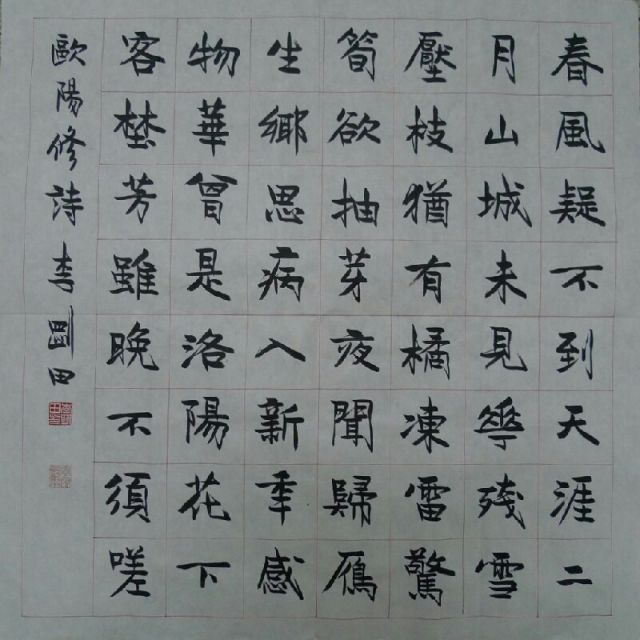 春風疑不到天涯二
月山城未見華殘雪
壓枝猶有橘凍雷驚
筍欲抽芽夜聞歸鴈
生鄉思病入新年感
物華曾是洛陽花下
客埜芳雖晚不須嗟
歐陽修詩李剛田